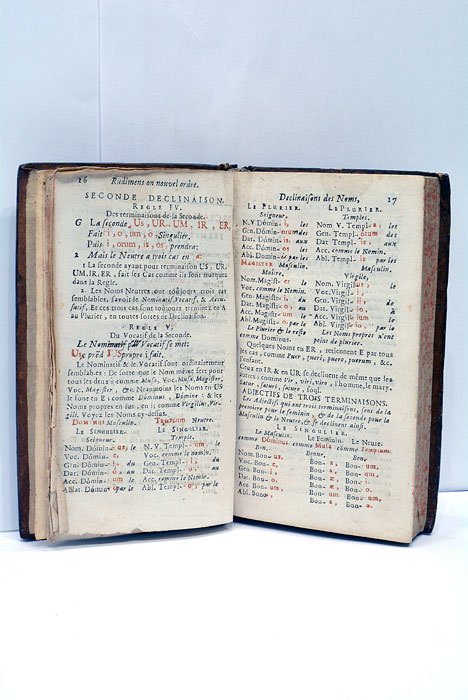 16 Rudimens en nouvel ordre.
SECONDE DECLINAISON.
REGLE IV.
Des terminaisons de la Seconde.
G La seconde, US, UR, UM, IR, ER,
Fait i, o, um, o, Singulier,
Puis i, orum, is, os prendra:
2 Mais le Neutre a trois cas en a:
1 La seconde ayant pour terminaison US, UR,
UM, IR, ER, fait les Cas comme ils sont marquez
dans la Regle.
2 Les Noms Neutres ont toûjours trois cas
semblables, savoir le Nominatif, Vocatif, & Accu-
satif. Et ces trois cas sont toûjours terminez en A
au Plurier, en toutes sortes de Declinaison.
REGLE V.
Du Vocatif de la Seconde.
Le Nominatif le Vocatif se met:
US prēd IUS propre i, fait.
Le Nominatif & le Vocatif sont ordinairement
semblables: De sorte que le Nom même sert pour
tous les deux: comme Musa, Voc. Musa, Magister,
Voc. Magister, &c. Neanmoins les Noms en US
le font en E: comme Dominus, Domine: & les
Noms propres en ius, en i; comme Virgilius, Vir-
gili. Voyez les Noms cy-dessus.
DOMINUS Masculin. TEMPLUM Neutre.
LE SINGULIER. LE SINGULIER.
Seigneur. Temple.
Nom. Dómin- us, le N. V. Templ- um, le
Voc. Dómin- e, Voc. comme le Nomin.
Gen. Dómin- i, du Gen. Templ- i, du
Dat. Dómin- o, au Dat. Templ- o, au
Acc. Dómin- um le Acc. comme le Nomin.
Ablat. Dómin- o, par le Abl. Templ- o, par le
Declinaisons des Noms, 17
LE PLURIER. LE PLURIER.
Seigneur. Temples.
N. V Dómin- i, les Nom V. Templ- a, les
Gen. Dómin- orum des Gen. Templ- orum des
Dat. Dómin- is, aux Dat. Templ- is, aux
Acc. Dómin- os les Acc. comme le Nomin.
Abl. Dómin- is par les Abl. Templ- is par les
MAGISTER Masculin. Masculin.
Maître. Virgile.
Nom. Magist- er le Nom. Virgil- us, le
Voc. comme le Nomin. Voc. Virgil- i,
Gen. Magistr- i, du Gen. Virgil- ii, de
Dat. Magistr- o, au Dat. Virgil- io, à
Acc. Magistr- um le Acc. Virgil- ium le
Abl. Magistr- o, par le Abl. Virgil- io, par le
Le Plurier & le reste Les Noms propres n'ont
comme Dominus. point de plurier.
Quelques Noms en ER, retiennent E par tous
les cas, comme Puer, pueri, puero, puerum, &c.
l'enfant.
Ceux en IR & en UR se declinent de même que les
autres: comme Vir, viri, viro, l'homme, le mary.
Satur, saturi, saturo, soul.
ADJECTIFS DE TROIS TERMINAISONS.
Les Adjectifs qui ont trois terminaisons, sont de la
premiere pour le feminin, & de la seconde pour le
Masculin & le Neutre, & se declinent ainsi.
LE SINGULIER.
Le Masculin. Le Feminin. Le Neutre.
comme Dóminus. comme Musa comme Templum
Bon. Bonne. Bon.
Nom. Bon- us, Bon- a, Bon- um.
Voc. Bon- e, Bon- a, Bon- um.
Gen. Bon- i, Bon- æ, Bon- i.
Dat. Bon- o, Bon- æ, Bon- o.
Acc. Bon- um, Bon- am, Bon- um.
Abl. Bon- o, Bon- a, Bon- o.